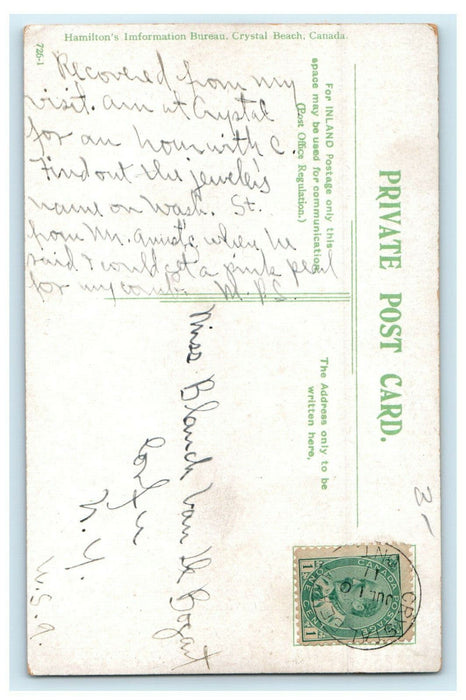 Hamilton's Imformation Bureau, Crystal Beach, Canada.
726-1
Recovered from my
visit. am at Crystal
for an hour with C.
Find out the jewelers
name on Wash. St.
from Mr. when he
said I could get a pink pearl
for my comb. M.P.S.
PRIVATE POST CARD.
For INLAND Postage only this
space may be used for communication
(Post Office Regulation.)
The Address only to be
written here.
Miss Blanch Van De Bogart
Corfu
N. Y.
U.S.A.
3-
CANADA POSTAGE
ONE CENT
1 1
CRYSTAL
JUL 19
11
ONT